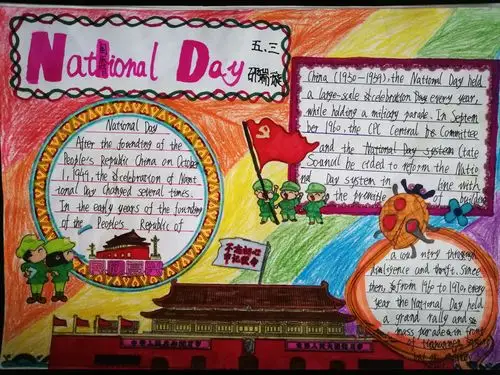 National Day
五、三
National Day
After the founding of the
People's Republic China on Octobe
1, 1949, the celebration of
tional Day changed several times.
In the early years of the founding
of the People's Republic of
China (1950-1959), the National Day held
a large-scale celebration Day every year,
while holding a military parade. In Septem
ber 1960, the CPC Central Committee
and the National Day system (state
cided to reform the Natio
nal Day system in line with
the principle of building
a country through
diligence and thrift. Since
then, from 1960 to 1970, every
year the National Day held
a grand rally and
mass parade in front
of
不忘初心
牢记使命
中华人民共和国万岁
世界人民大团结万岁